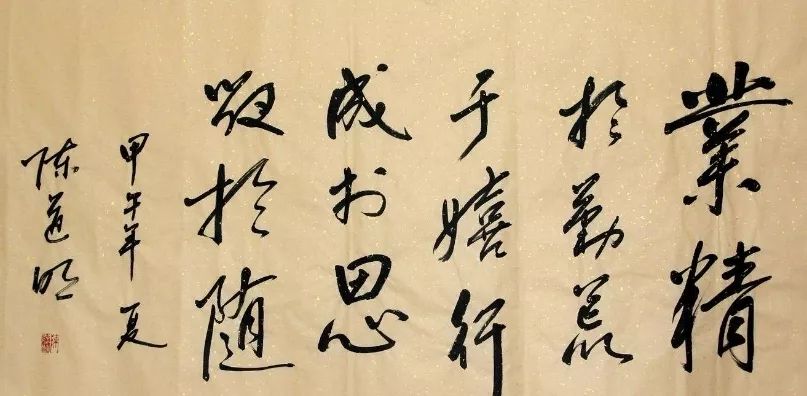 業精
於勤荒
于嬉行
成於思
毀於隨
甲午年夏
陈道明